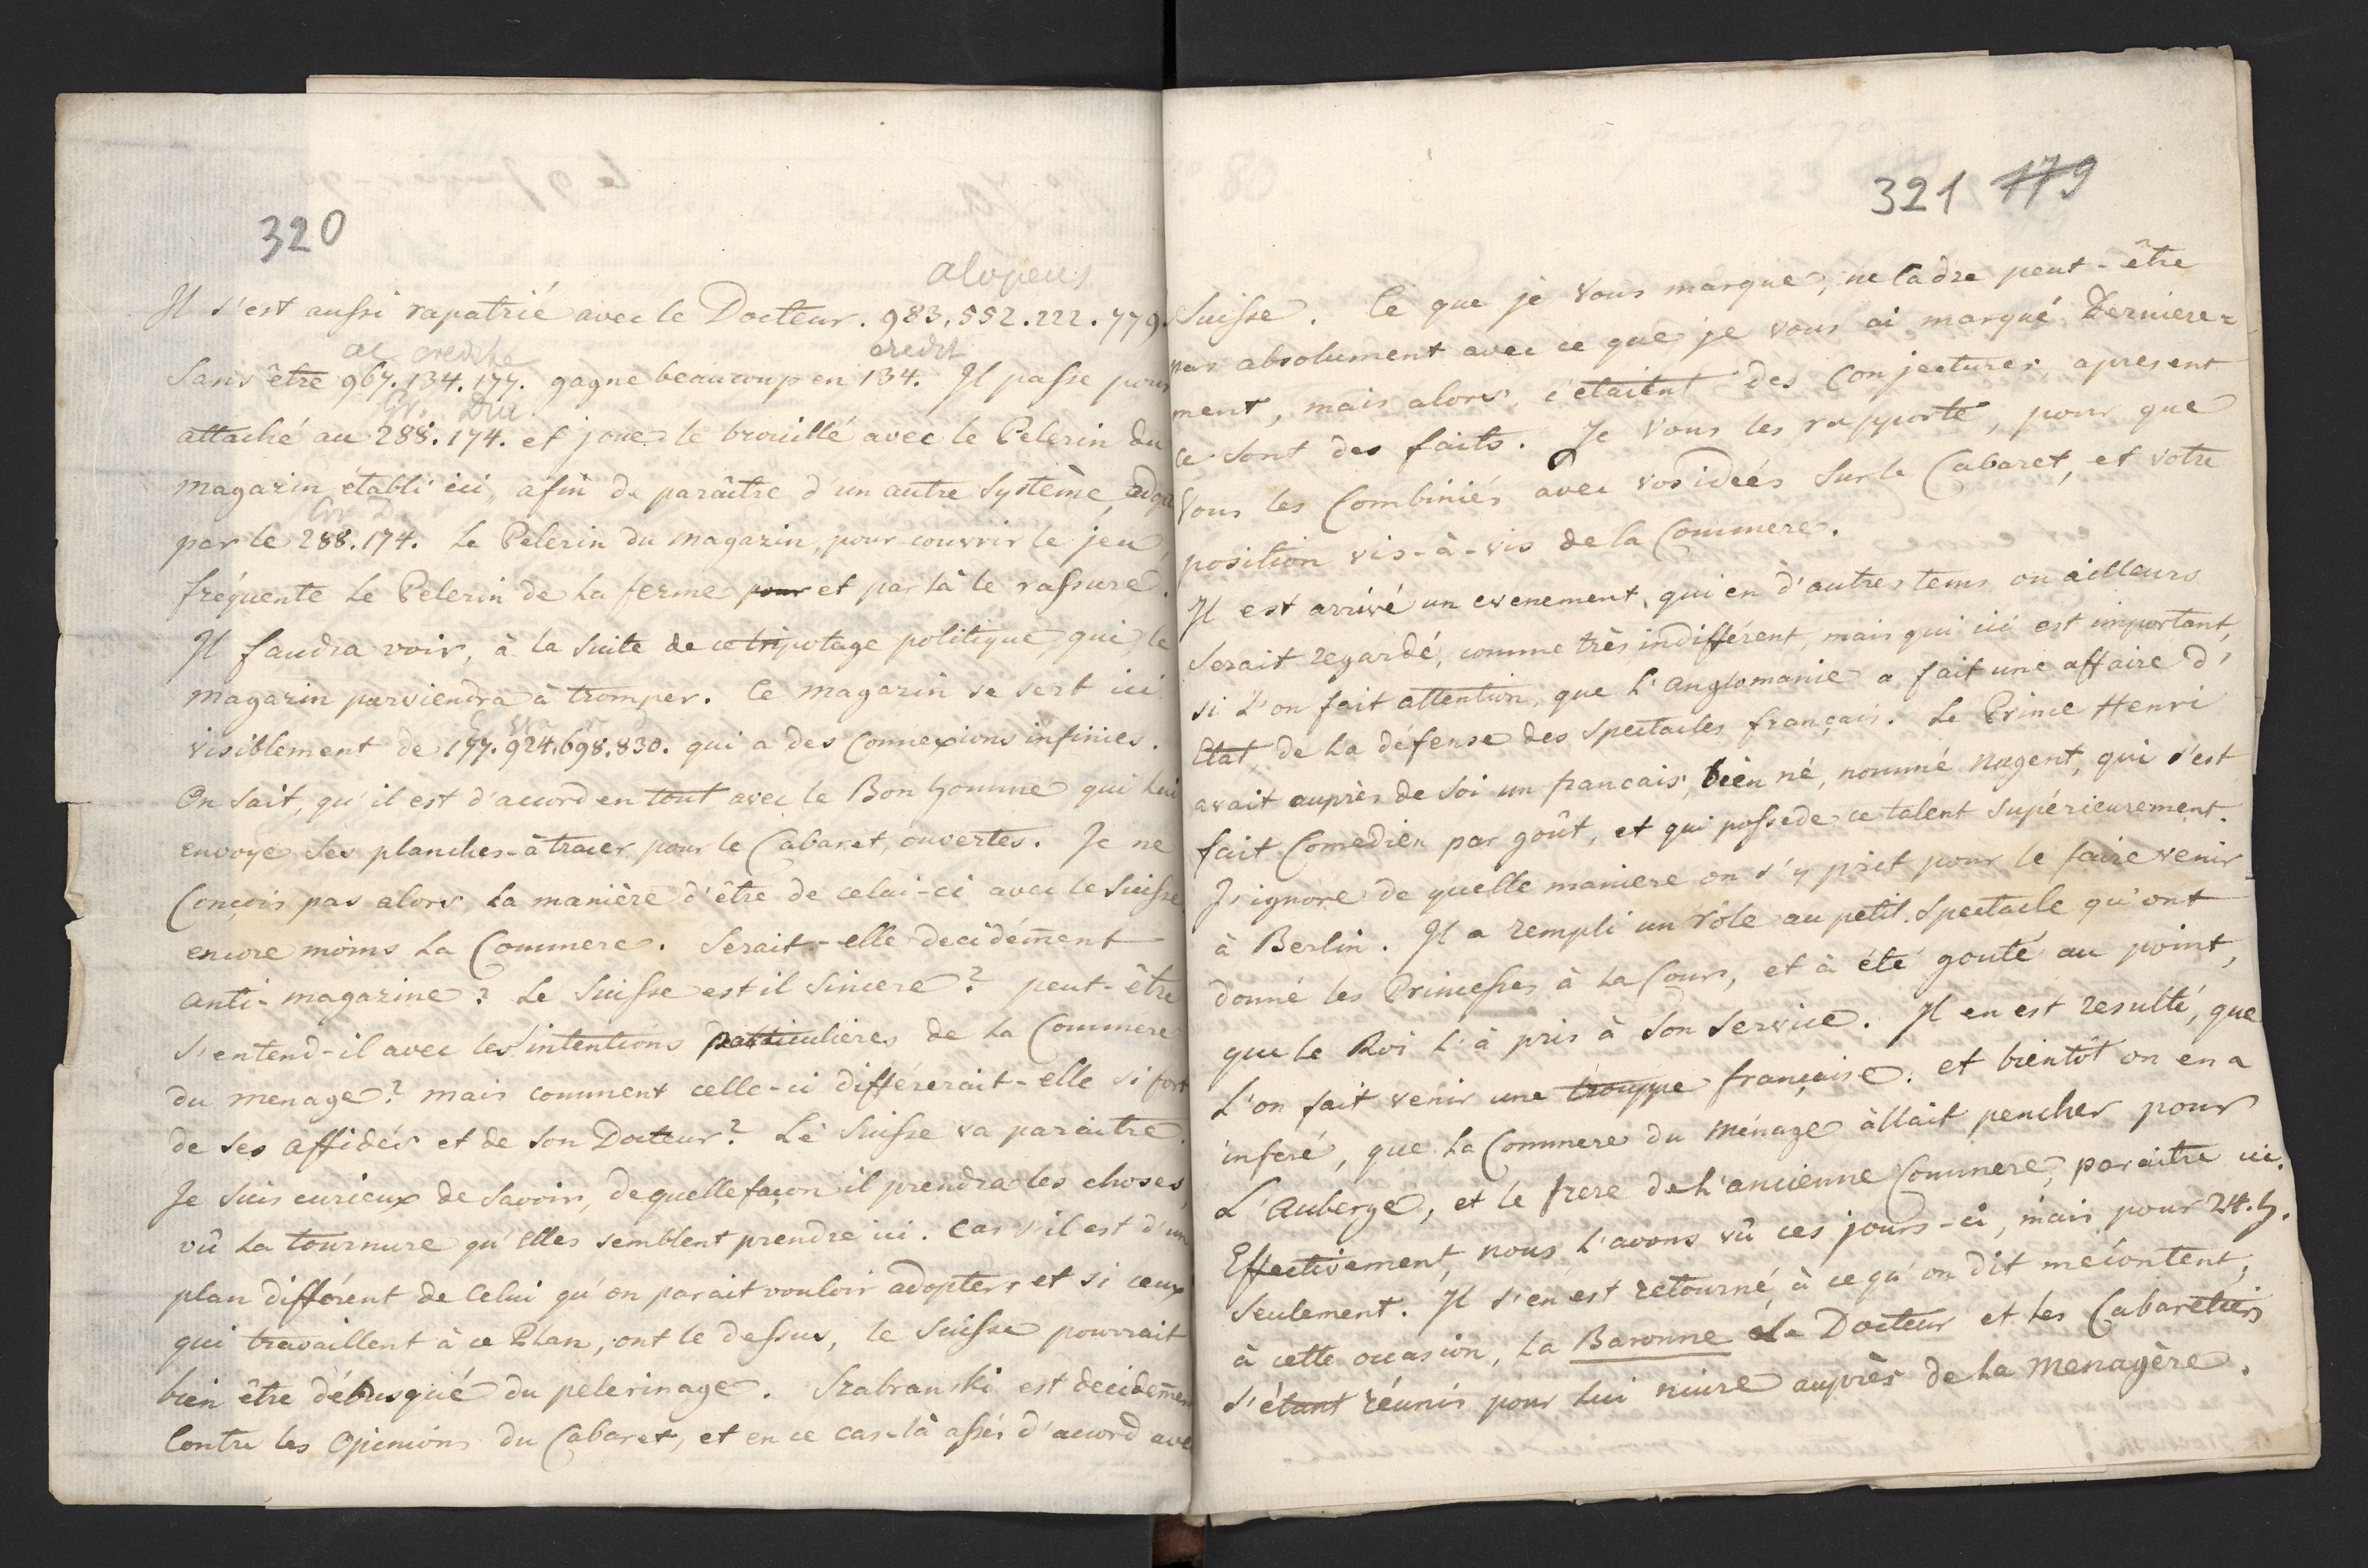 320
alopeus
Il s'est aussi rapatrié avec le Docteur. 983.552.222.779.
ac credite
credit
Sans être 967.134.177. gagne beaucoup en 134. Il passe pour
Gr. Duc
attaché au 288.174. et joue le brouillé avec le Pelerin du
magazin établi ici, afin de paraître d'un autre Systême,
par le 288.174. Le Pelerin du magazin, pour couvrir le jeu,
fréquente le Pelerin de la ferme pour et par là le rassure.
Il faudra voir, à la suite de ce tripotage politique, qui le
magazin parviendra à tromper. Ce magazin se sert ici
visiblement de 177.924.698.830. qui a des Connexions infinies.
On sait, qu'il est d'accord en tout avec le Bon homme qui lui
envoye ses planches-à tracer pour le Cabaret, ouvertes. Je ne
Conçois pas alors la manière d'être de celui-ci avec le Suisse
encore moins la Commere. Serait-elle decidément
anti-magazine? Le Suisse est il Sincere? peut-être
s'entend-il avec les intentions particulieres de la Commere
du menage? mais comment celle-ci différerait-elle si fort
de ses affidés et de son Docteur? Le Suisse va paraitre.
Je suis curieux de savoir, de quelle façon il prendra les choses,
vû la tournure qu'elles semblent prendre ici. Car s'il est d'un
plan différent de celui qu'on parait vouloir adopter, et si ceux
qui travaillent à ce Plan, ont le dessus, le Suisse pourrait
bien être débusqué du pelerinage. Szabranski est decidemen
Contre les Opinions du Cabaret, et en ce cas-là assés d'accord avec
321 179
Suisse. Ce que je vous marque, ne Cadre peut-être
pas absolument avec ce que je vous ai marqué Derniere=
ment, mais alors, c'etaient des Conjectures, apresent
ce sont des faits. Je vous les rapporte, pour que
vous les Combiniés avec vos ideés sur le Cabaret, et votre
position vis-à-vis de la Commere.
Il est arrivé un evenement, qui en d'autres tems ou ailleurs
serait regardé, comme très indifférent, mais qui ici est important,
si l'on fait attention, que l'anglomanie a fait une affaire d'
Etat, de la défense des Spectacles français. Le Prince Henri
avait auprès de soi un francais, bien né, nommé Nugent, qui s'est
fait Comedien par goût, et qui possede ce talent supérieurement.
J'ignore de quelle maniere on s'y prit pour le faire venir
à Berlin. Il a rempli un rôle au petit Spectacle qu'ont
donné les Princesses à la Cour, et à été gouté au point,
que le Roi l'à pris à son Service. Il en est resulté, que
l'on fait venir une trouppe française. et bientôt on en a
inferé, que la Commere du ménage allait pencher pour
L'Auberge, et le frere de l'ancienne Commere, paraitre ici.
Effectivement, nous l'avons vû ces jours-ci, mais pour 24. h.
Seulement. Il s'en est retourné, à ce qu'on dit mécontent,
à cette occasion, la Baronne le Docteur et les Cabaretiers
s'étant réunis pour lui nuire auprès de la menagère.